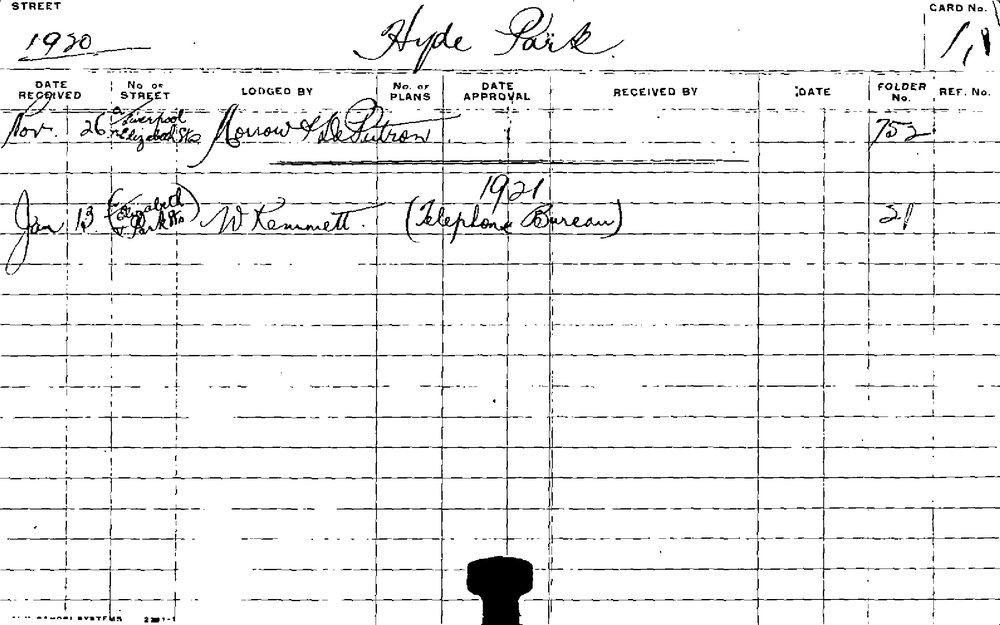 STREET
CARD No.
1920 Hyde Park
DATE RECEIVED
No OF STREET
LODGED BY
No. OF PLANS
DATE APPROVAL
RECEIVED BY
DATE
FOLDER No.
REF. No.
Nov. 26 Liverpool Morrow & De Putron 752
Elizabeth Sts
1921
Jan 13 (Elizabeth & Park Sts) W Kemmett. (Telephone Bureau) 21